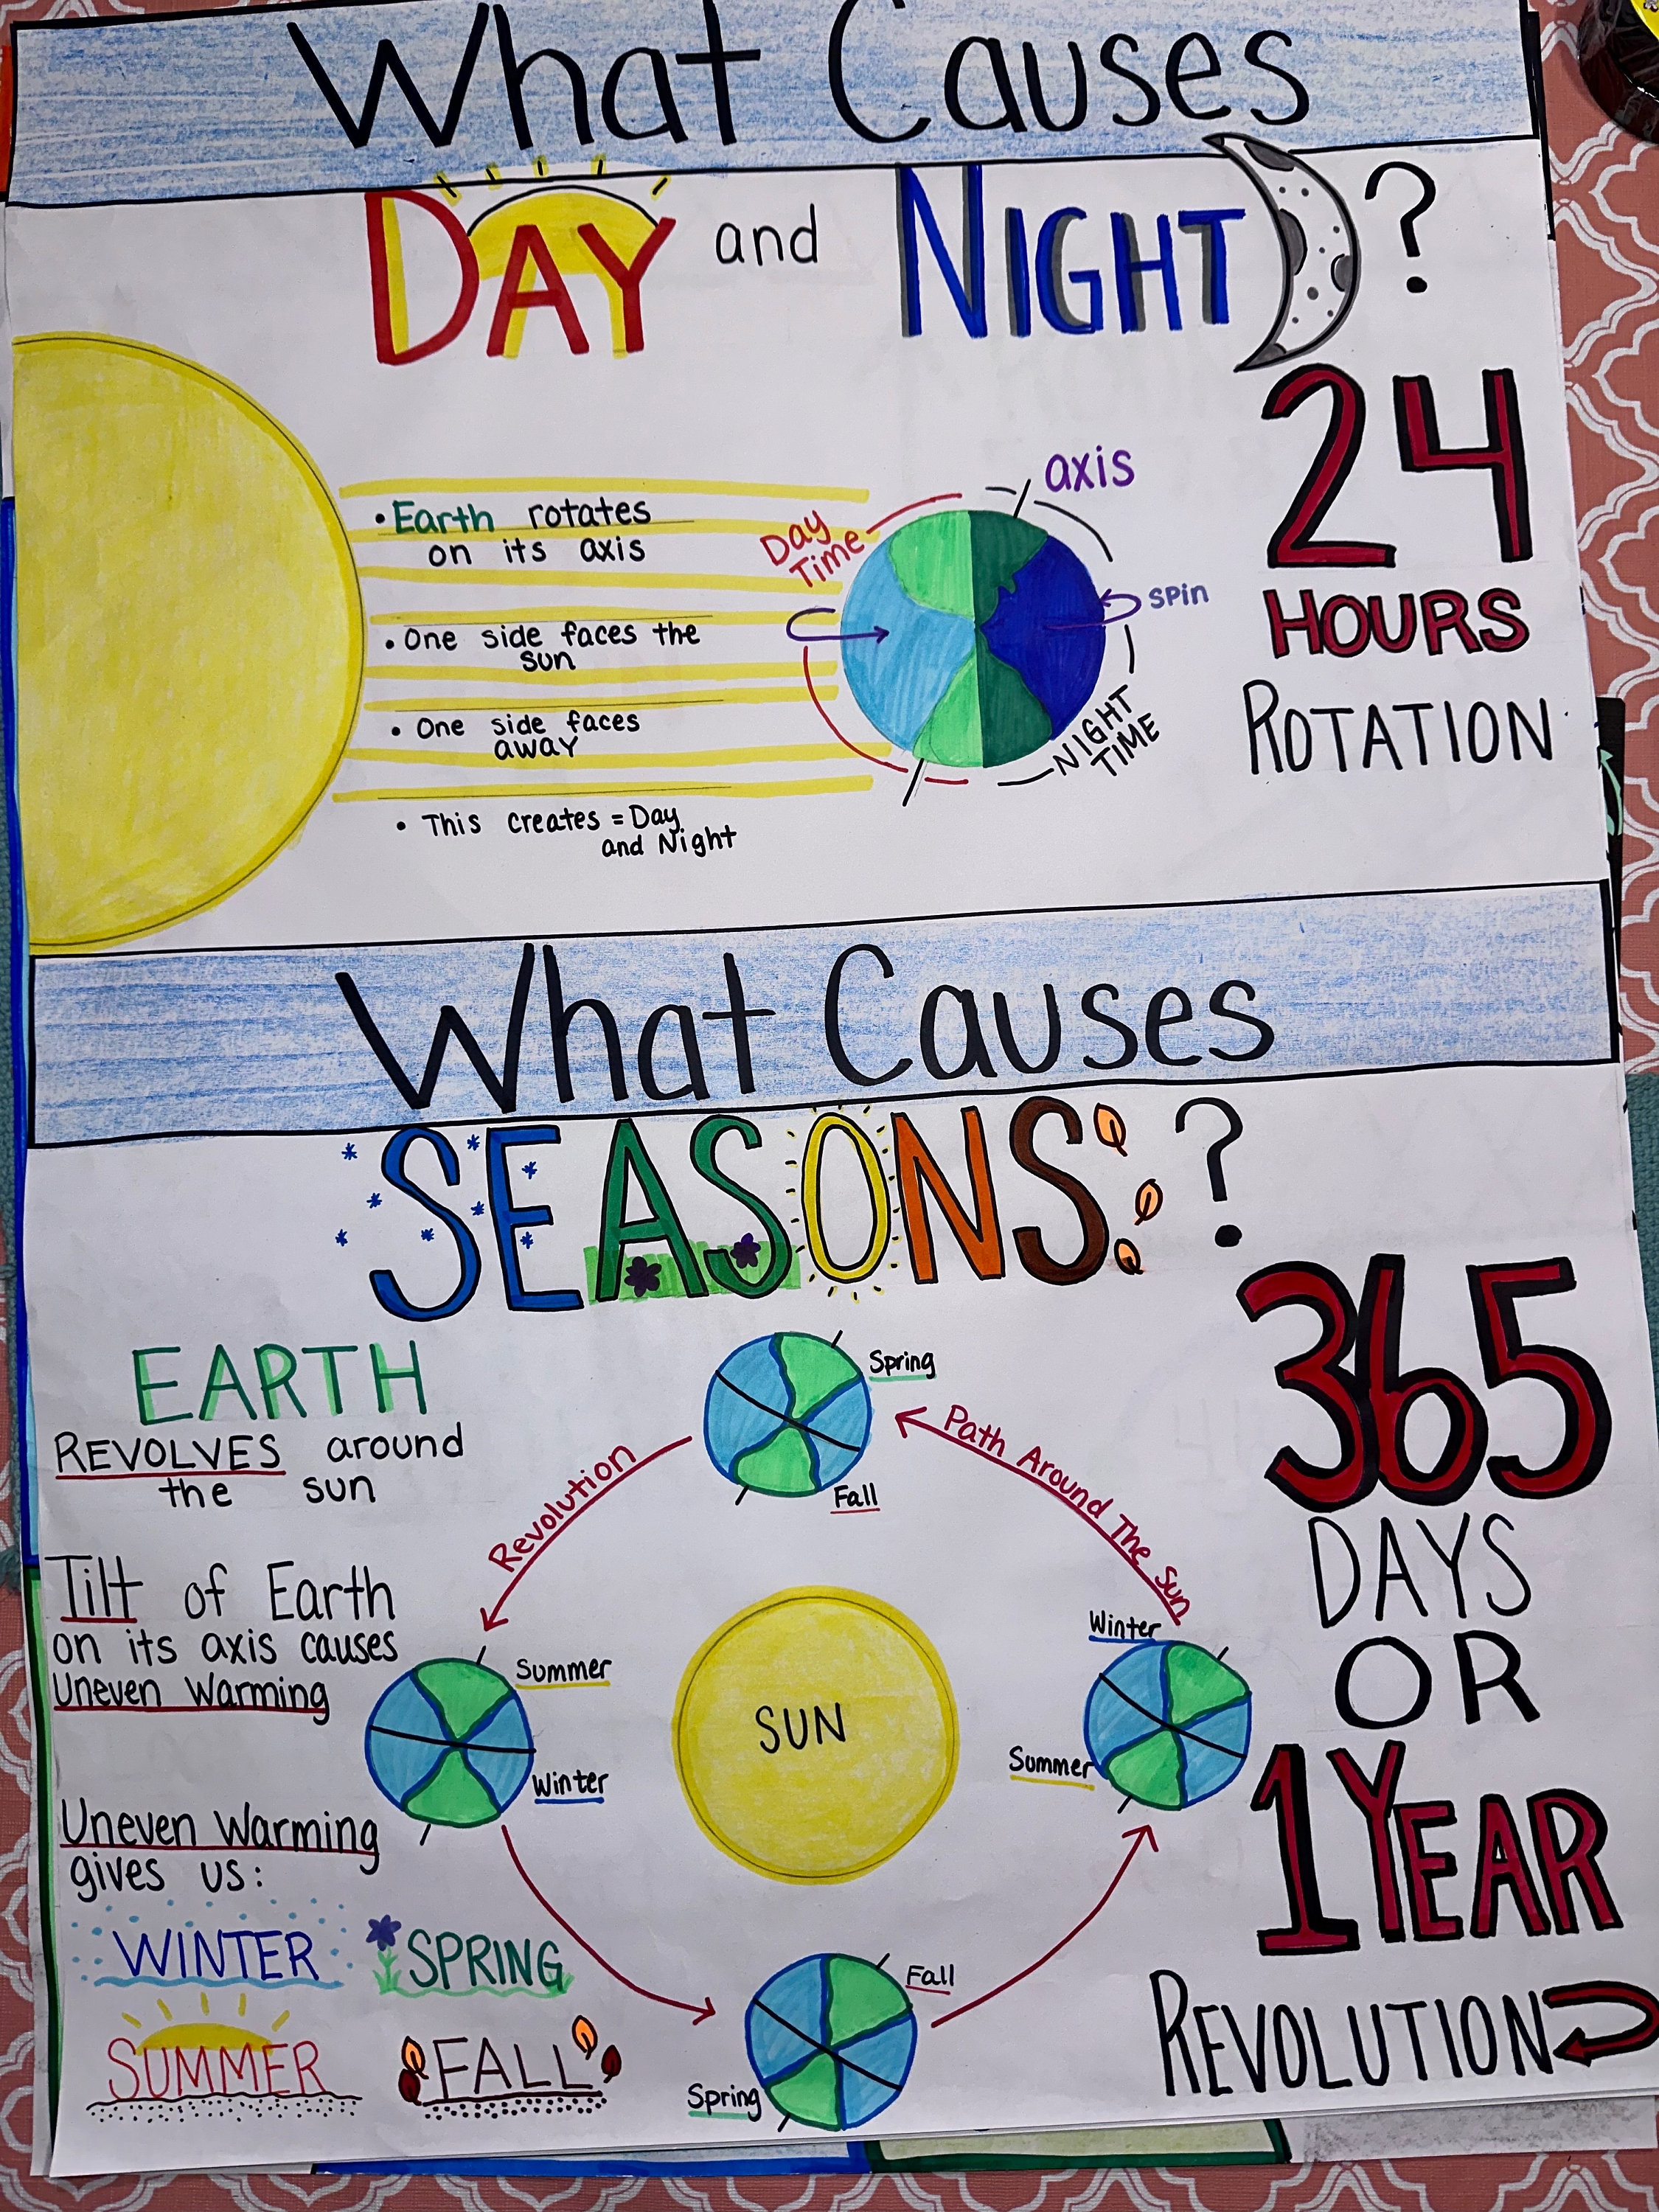 What Causes
DAY and NIGHT ?
24
HOURS
ROTATION
axis
Day
Time
spin
NIGHT
TIME
• Earth rotates
on its axis
• One side faces the
sun
• One side faces
away
• This creates = Day
and Night
What Causes
SEASONS ?
EARTH
REVOLVES around
the sun
Tilt of Earth
on its axis causes
Uneven Warming
Uneven Warming
gives us:
WINTER
SPRING
SUMMER
FALL
Spring
Fall
Revolution
Path Around The Sun
Summer
Winter
SUN
Winter
Summer
Fall
Spring
365
DAYS
OR
1 YEAR
REVOLUTION